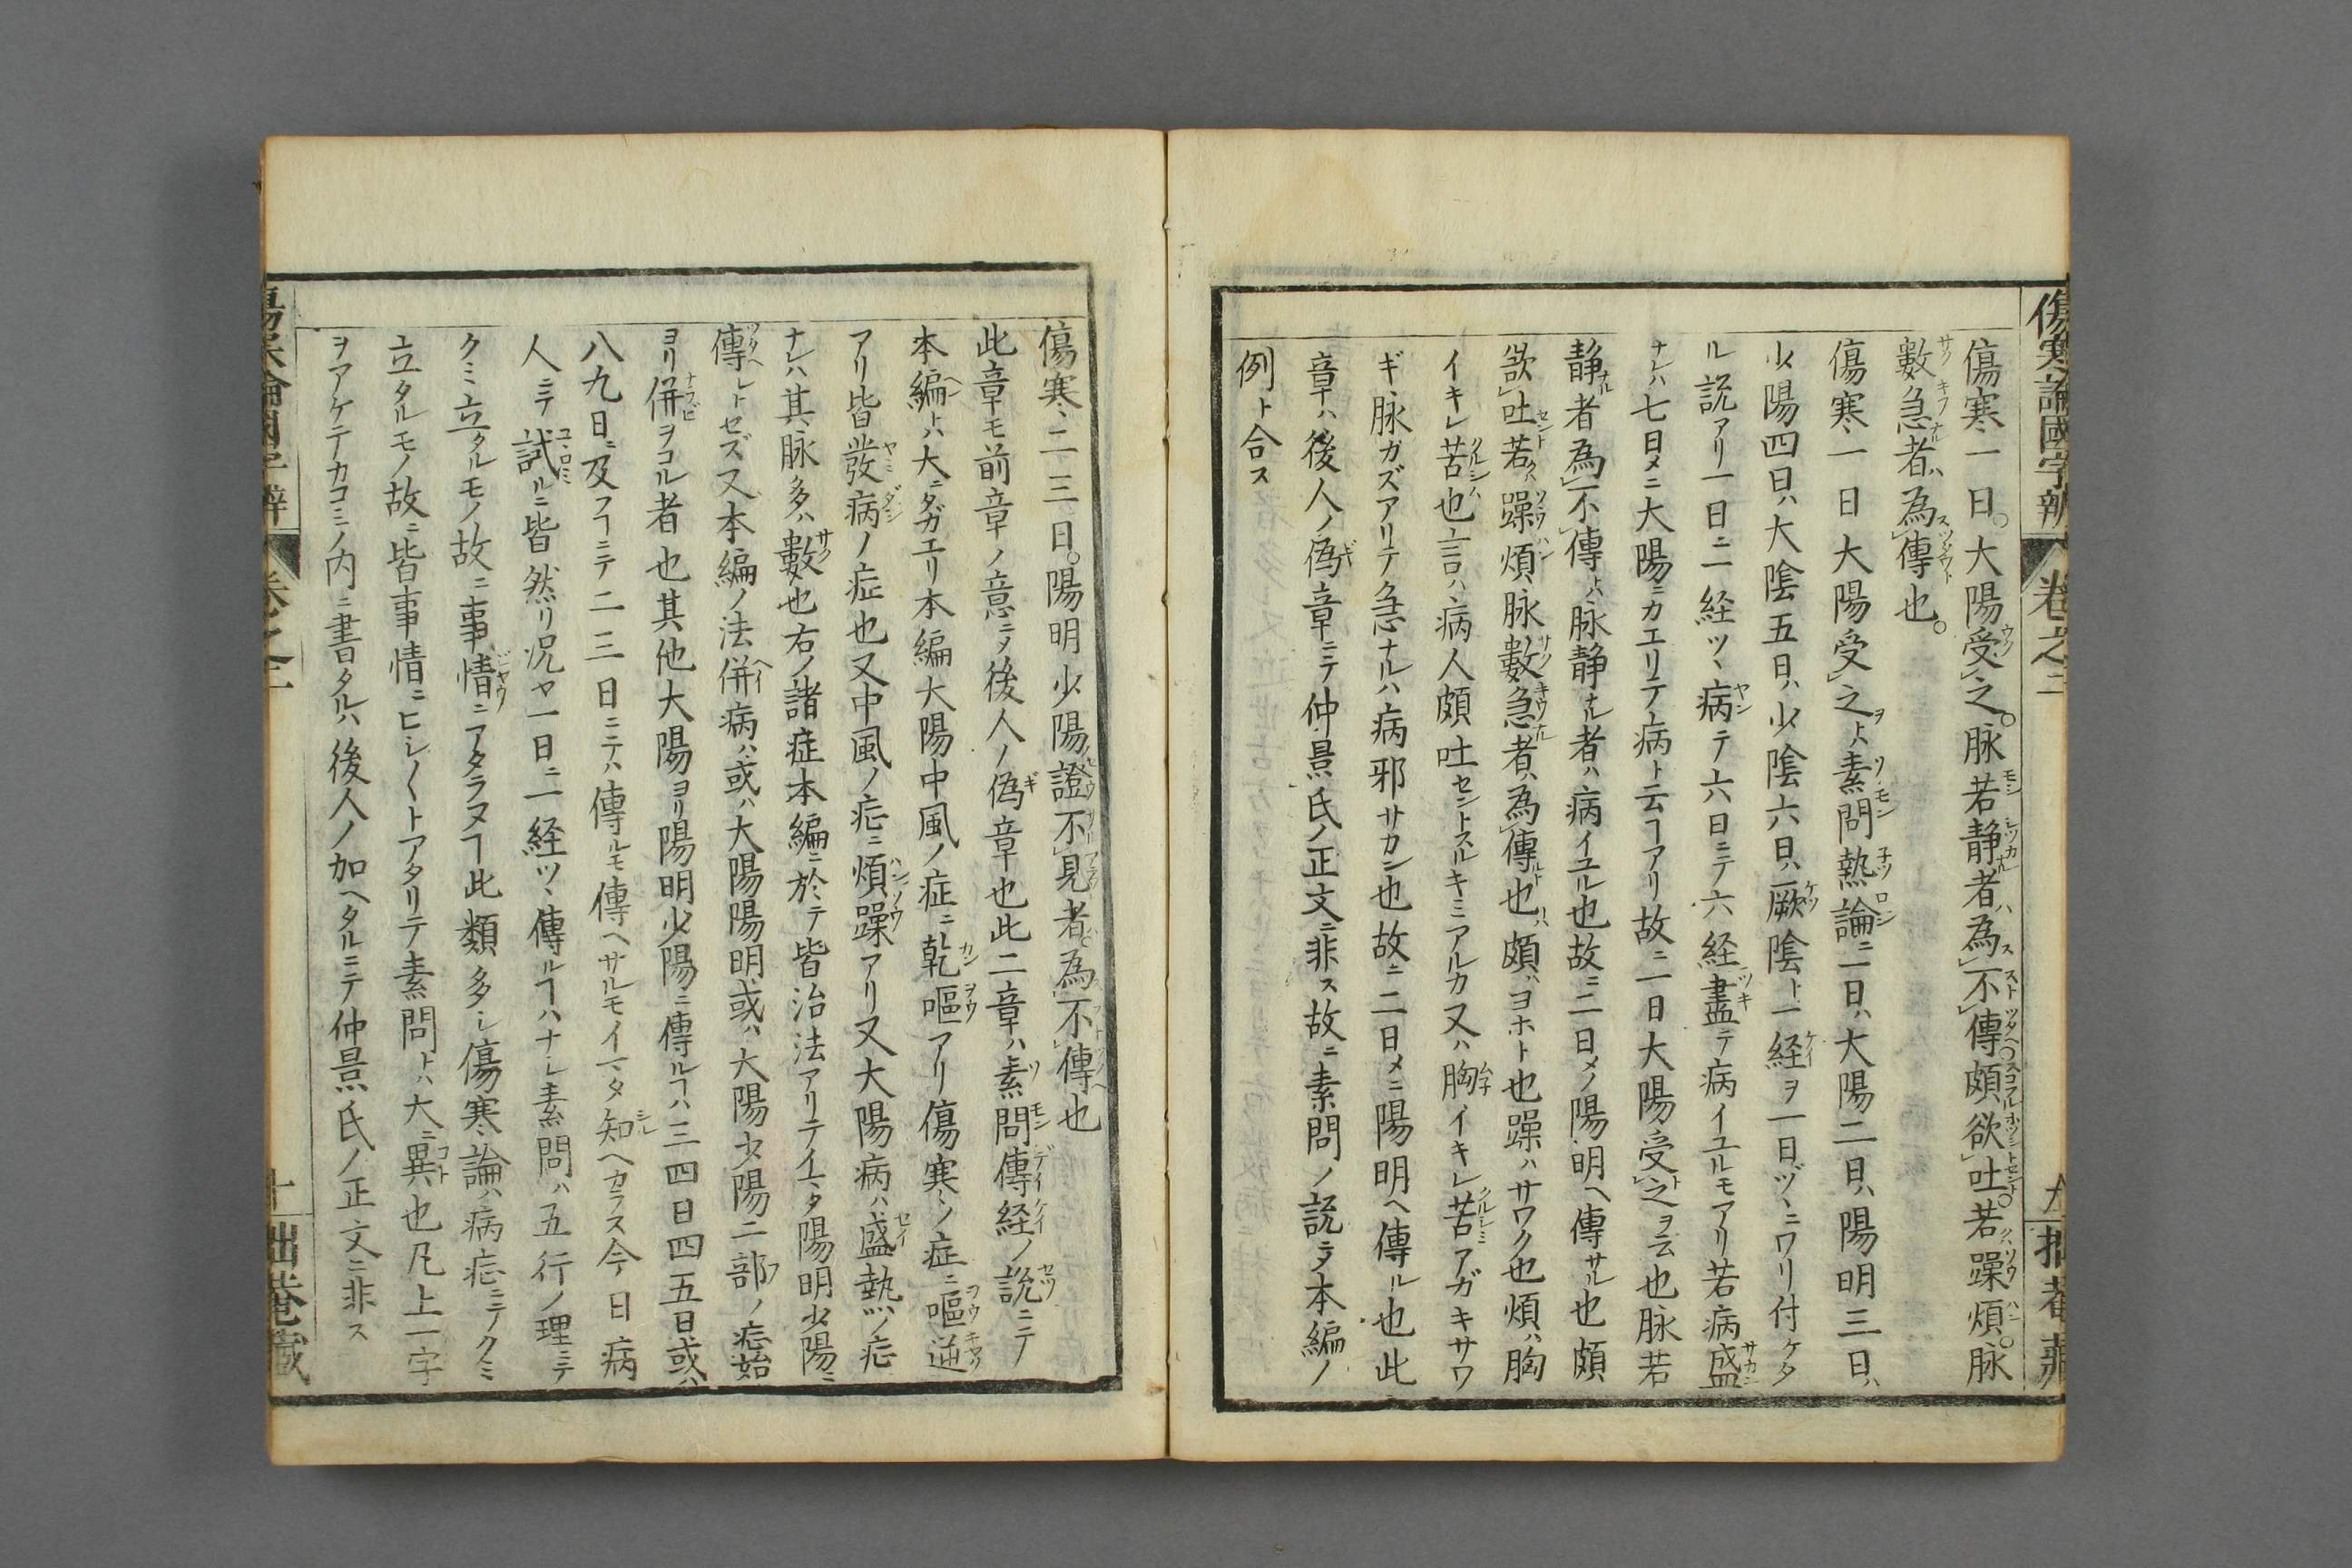 傷寒論國字辨 卷之二 九 拙菴蔵
傷寒一日大陽受之脉若静者為不傳頗欲吐若躁煩脉
數急者為傳也
傷寒一日大陽受之ト素問熱論ニ一日ハ大陽二日ハ陽明三日ハ
少陽四日ハ大陰五日ハ少陰六日ハ厥陰ト一経ヲ一日ヅヽニワリ付ケタ
ル説アリ一日ニ一経ツヽ病テ六日ニテ六経盡テ病イユルモアリ若病盛
ナレハ七日メニ大陽ニカエリテ病ト云ヿアリ故ニ一日大陽受之ヲ云也脉若
静者為不傳トハ脉静ナル者ハ病イユル也故ニ二日メノ陽明ヘ傳サル也頗
欲吐若躁煩脉數急者為傳也ハ頗ハヨホト也躁ハサワク也煩ハ胸
イキレ苦也言ハ病人頗吐セントスルキミアルカ又ハ胸イキレ苦アガキサワ
ギ脉ガズアリテ急ナルハ病邪サカン也故ニ二日メニ陽明ヘ傳ル也此
章ハ後人ノ偽章ニテ仲景氏ノ正文ニ非ス故ニ素問ノ説ヲ本編ノ
例ト合ス
傷寒二三日陽明少陽證不見者為不傳也
此章モ前章ノ意ニメ後人ノ偽章也此二章ハ素問傳経ノ説ニテ
本編トハ大ニタガエリ本編大陽中風ノ症ニ乾嘔アリ傷寒ノ症ニ嘔逆
アリ皆發病ノ症也又中風ノ症ニ煩躁アリ又大陽病ハ盛熱ノ症
ナレハ其脉多ハ數也右ノ諸症本編ニ於テ皆治法アリテイマタ陽明少陽ニ
傳ヘレトセズ又本編ノ法併病ハ或ハ大陽陽明或ハ大陽少陽二部ノ症始
ヨリ併ヲコル者也其他大陽ヨリ陽明少陽ニ傳ルヿハ三四日四五日或ハ
八九日ニ及フヿニテ二三日ニテハ傳ルモ傳ヘサルモイマタ知ヘカラス今日病
人ニテ試ルニ皆然リ况ヤ一日ニ一経ツヽ傳ルヿハナシ素問ハ五行ノ理ニテ
クミ立タルモノ故ニ事情ニアタラヌヿ此類多シ傷寒論ハ病症ニテクミ
立タルモノ故ニ皆事情ニヒシ〱トアタリテ素問トハ大ニ異也凡上一字
ヲアケテカコミノ内ニ書タルハ後人ノ加ヘタルニテ仲景氏ノ正文ニ非ス
傷寒論國字辨 卷之二 十 拙菴蔵